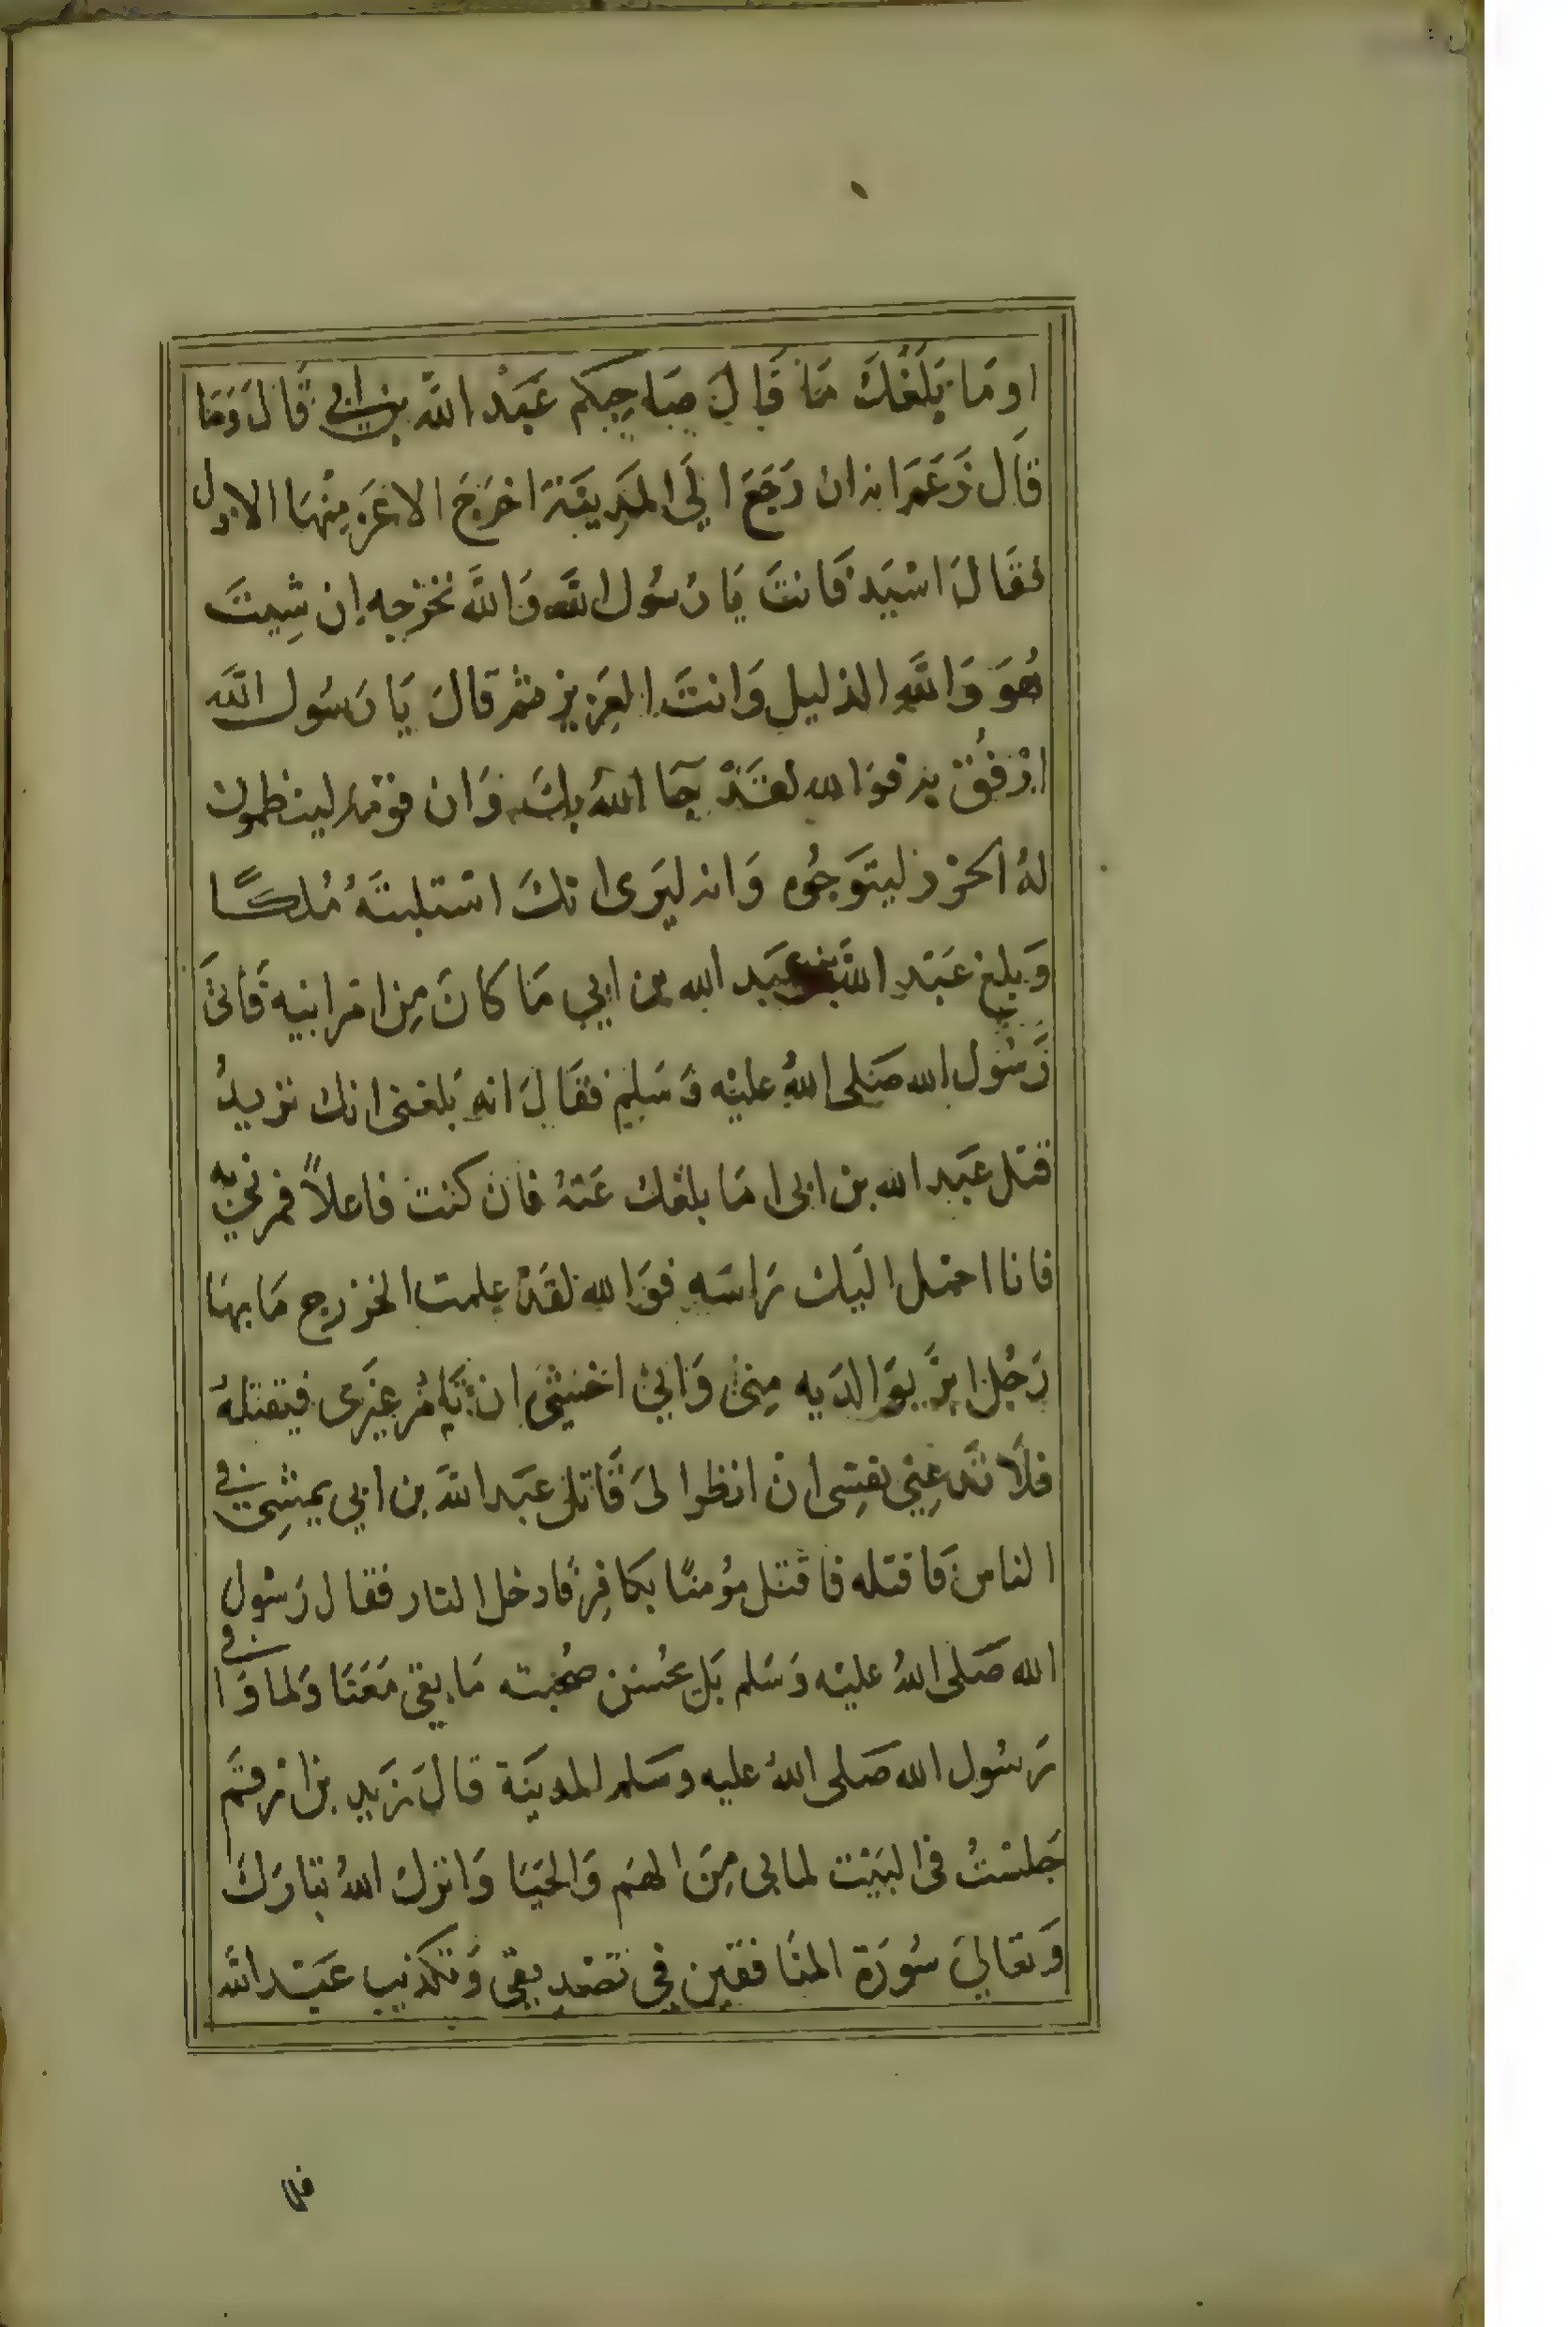 اومَا بَلَغَكَ مَا قَالَ صَاحِبكم عَبْد الله بن ابي قَالَ وَمَا
قَال زَعَمَ انه ان رَجَعَ الَى المَدِينَة اخرَجَ الاعَز مِنْهَا الاذل
فقَالَ اسَيَد فَانتَ يَا رَسُول الله وَالله نخرجه اِن شِيتَ
هُوَ وَاللهِ الذليل وَانتَ العَزِيز ثم قالَ يَا رَسُول الله
ارْفُقْ به فوَالله لقَدْ جَا اللهُ بك وَان قومَه لينظمون
لهُ الخرز ليتَوجُوه وَانه ليَرى انكَ اسْتلبتَهُ مُلكًا
وَبلغ عَبْدِ الله بن عَبد الله بن ابي مَا كانَ مِن امر ابيه فَاتى
رَسُول الله صَلى اللهُ عليْه وَسَلم فقَالَ انه بَلغنى انك تريدُ
قتل عَبد الله بن ابى لمَا بلغك عَنهُ فان كنت فاعلاً فمرني به
فانا احمل اليك رَاسَه فوَالله لقَدْ علمت الخزرج مَا بهَا
رَجُل ابرَّ بوَالدَيه مِنى وَاني اخشى ان تَامُر غيرَى فيقتلهُ
فلَا تدعِني نفسِى ان انظر الىَ قَاتل عَبد الله بن ابي يمشِى في
الناس فَاقتله فاقتل مؤمنًا بكافِر فادخل النار فقال رَسُول
الله صَلى اللهُ عليْه وَسَلم بَل نحسن صُحبته مَا بقى مَعَنَا وَلما وَافى
رَسُول الله صَلى اللهُ عليه وسَلم المدينَة قالَ زَيد بن ارقم
جَلسْتُ فى البَيْت لمابى مِنَ الهَم وَالحَيَا وَانزل اللهُ تبَارَكَ
وَتعَالىَ سُورَة المنَافقين في تصْديقي وَتكذيب عَبْد الله